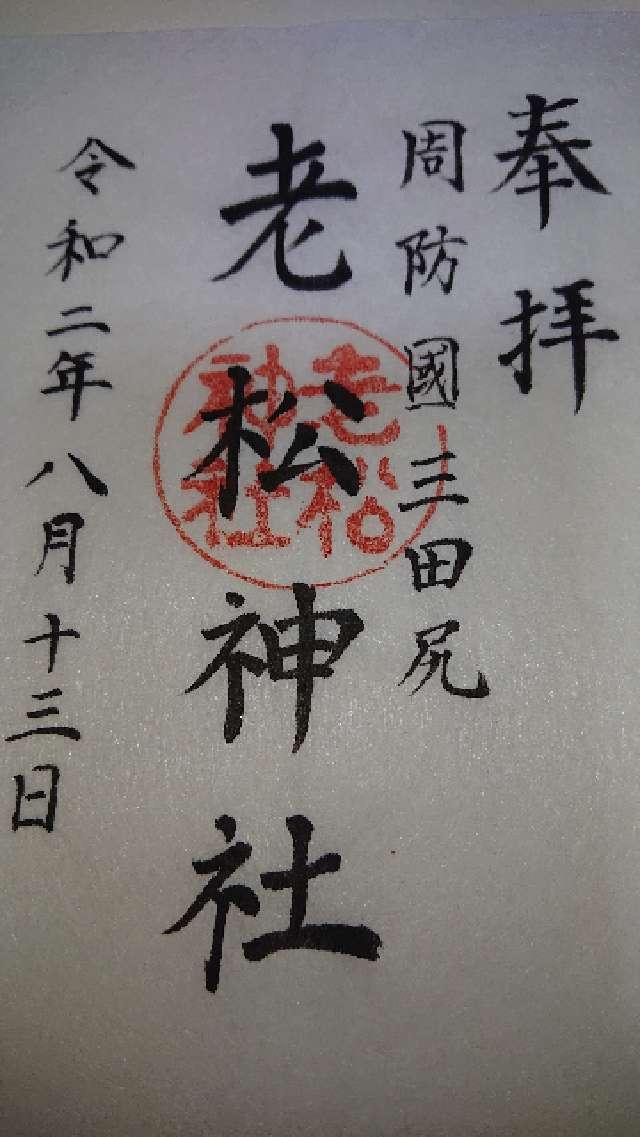 奉拝
周防國三田尻
老松神社
老松神社
令和二年八月十三日